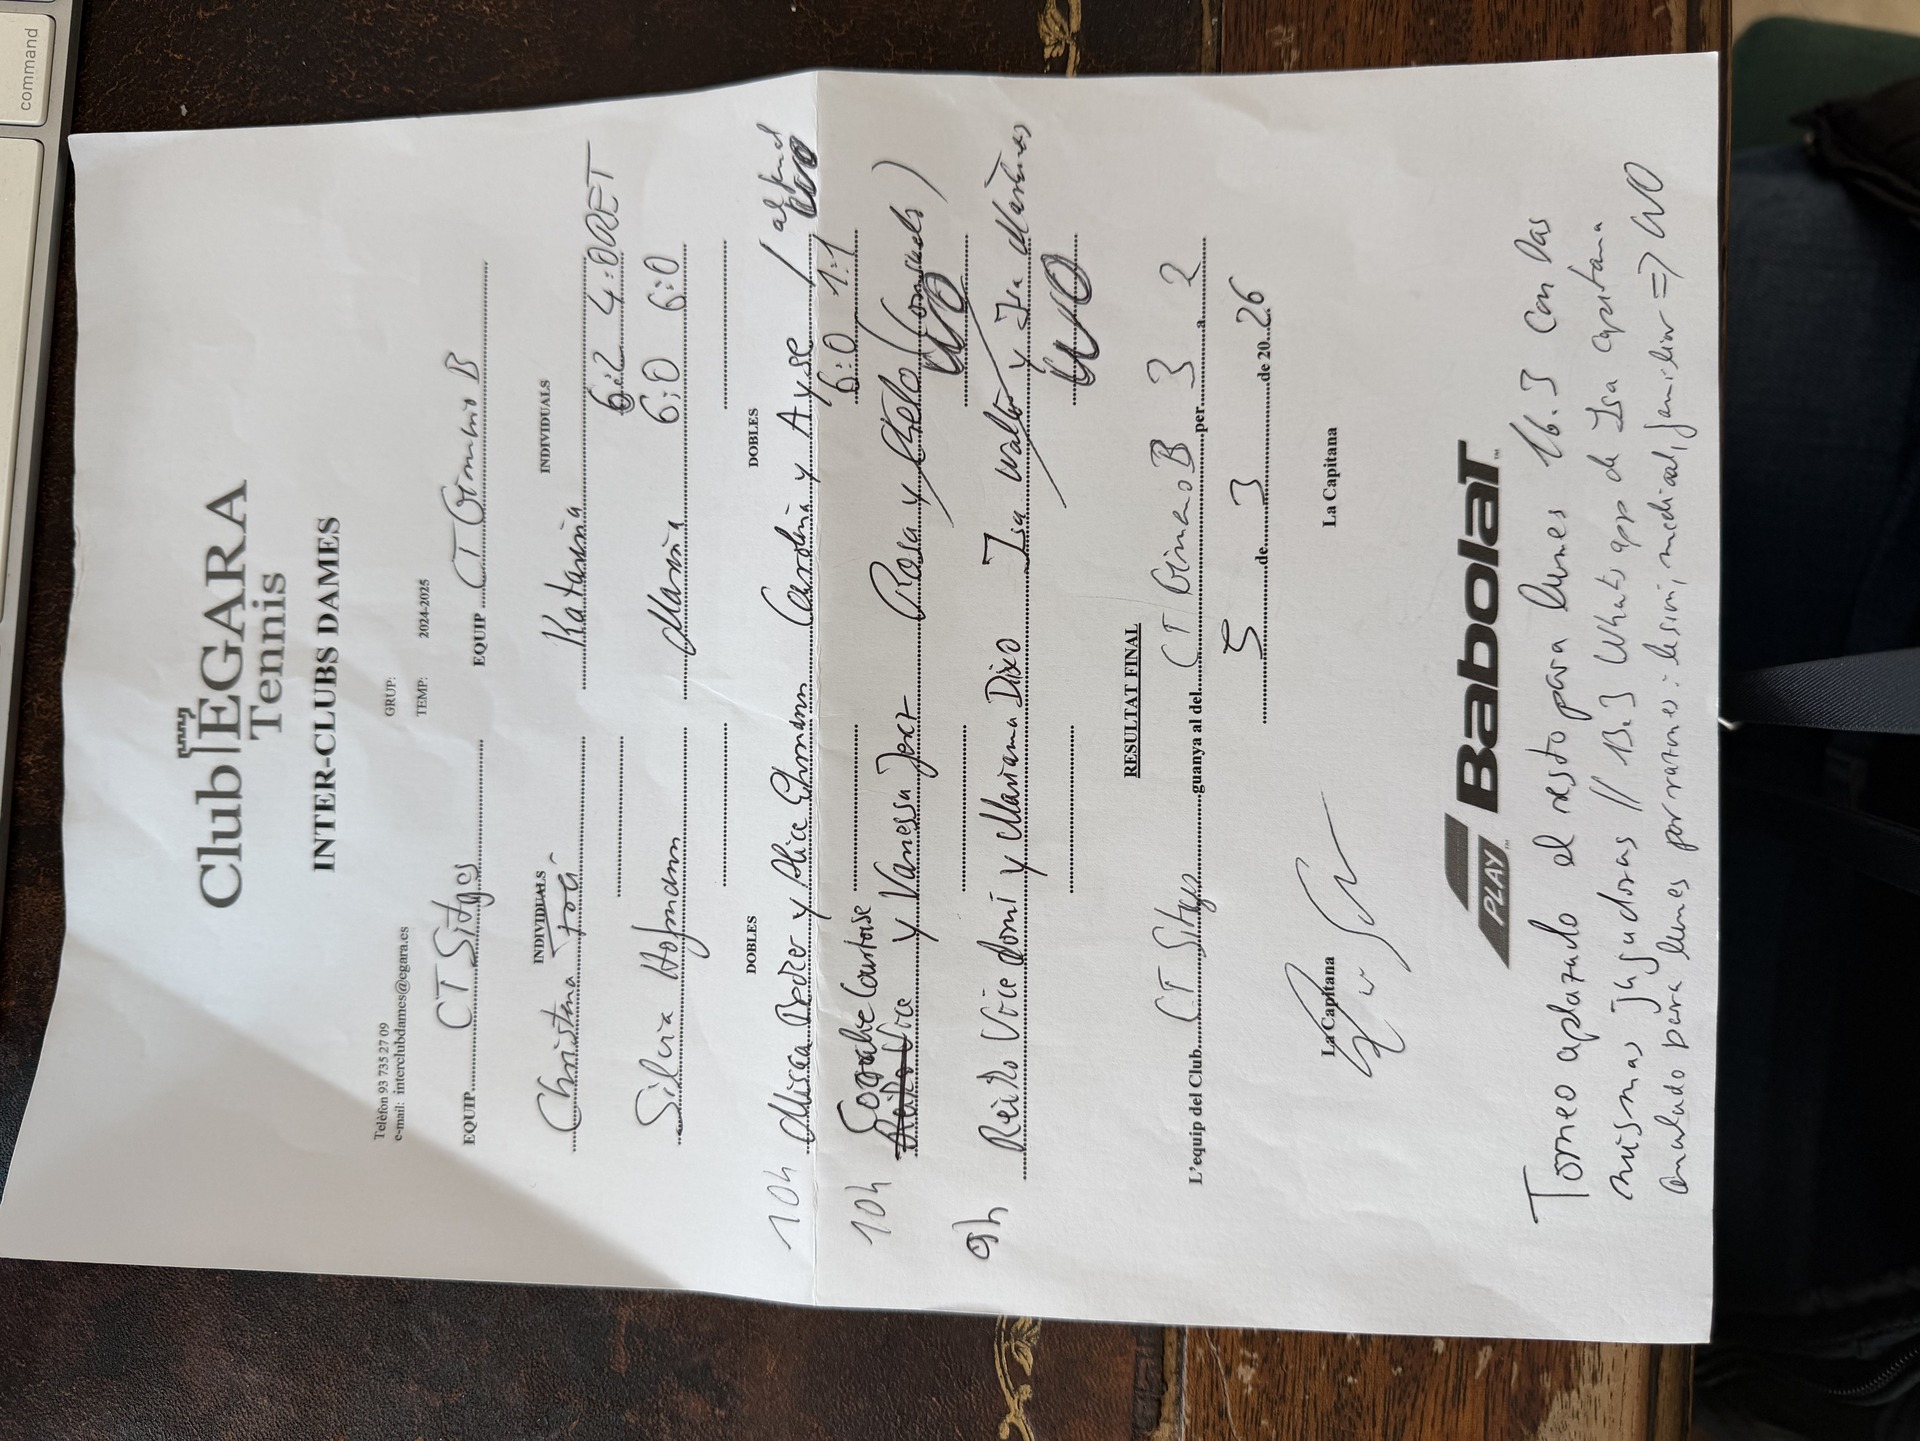 command
Club EGARA
Tennis
INTER-CLUBS DAMES
Telèfon 93 735 27 09
e-mail: interclubdames@cgara.es
GRUP:
TEMP: 2024-2025
EQUIP CT Sitges EQUIP CT Gimnino B
INDIVIDUALS INDIVIDUALS
Christina Katarina 6:2 4:0 RET
Silvia Hofmann Maria 6:0 6:0
DOBLES DOBLES
10h y Alice Ehmann Carolina y Ayse / al final WO
6:0 1:1
10h y Vanessa Rosa y WO
9h Reiko y Mariana Dixo Isa Walter y Isa WO
RESULTAT FINAL
L'equip del Club CT Sitges guanya al del CT B per 3 a 2
5 de 3 de 2026
La Capitana La Capitana
PLAY Babolat
Torneo aplazado el resto para lunes 16.3 con las
mismas jugadoras // 13.3 Whats app de Isa capitana
anulado para lunes por razones: lesion, medical, familiar => WO